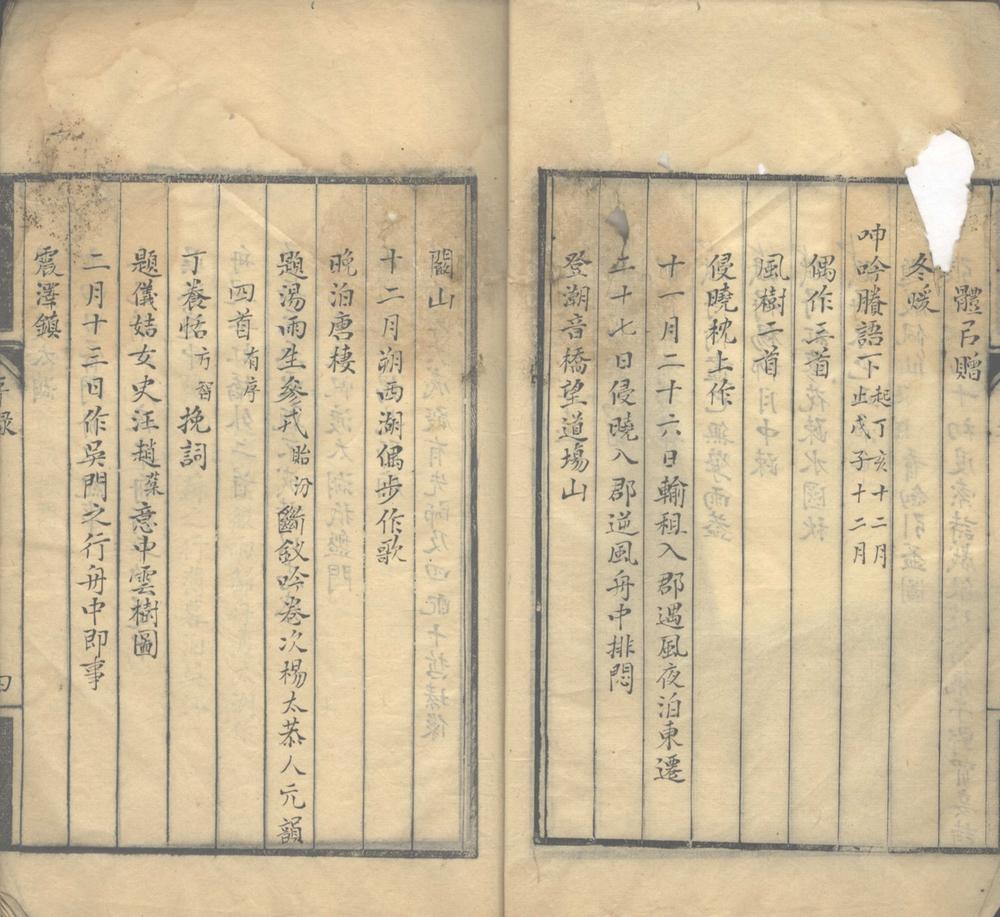 體以贈
冬煖
呻吟賸語下 起丁亥十二月止戊子十二月
偶作三首
風樹二首
侵曉枕上作
十一月二十六日輸租入郡遇風夜泊東遷
二十七日侵曉入郡逆風舟中排悶
登潮音橋望道場山
峴山
十二月朔西湖偶步作歌
晚泊唐棲
題湯雨生參戎 貽汾 斷釵吟卷次楊太恭人元韻
四首 有序
丁養恬 方智 挽詞
題儀姞女史汪趙 棻 意中雲樹圖
二月十三日作吳門之行舟中即事
震澤鎮
錄
四